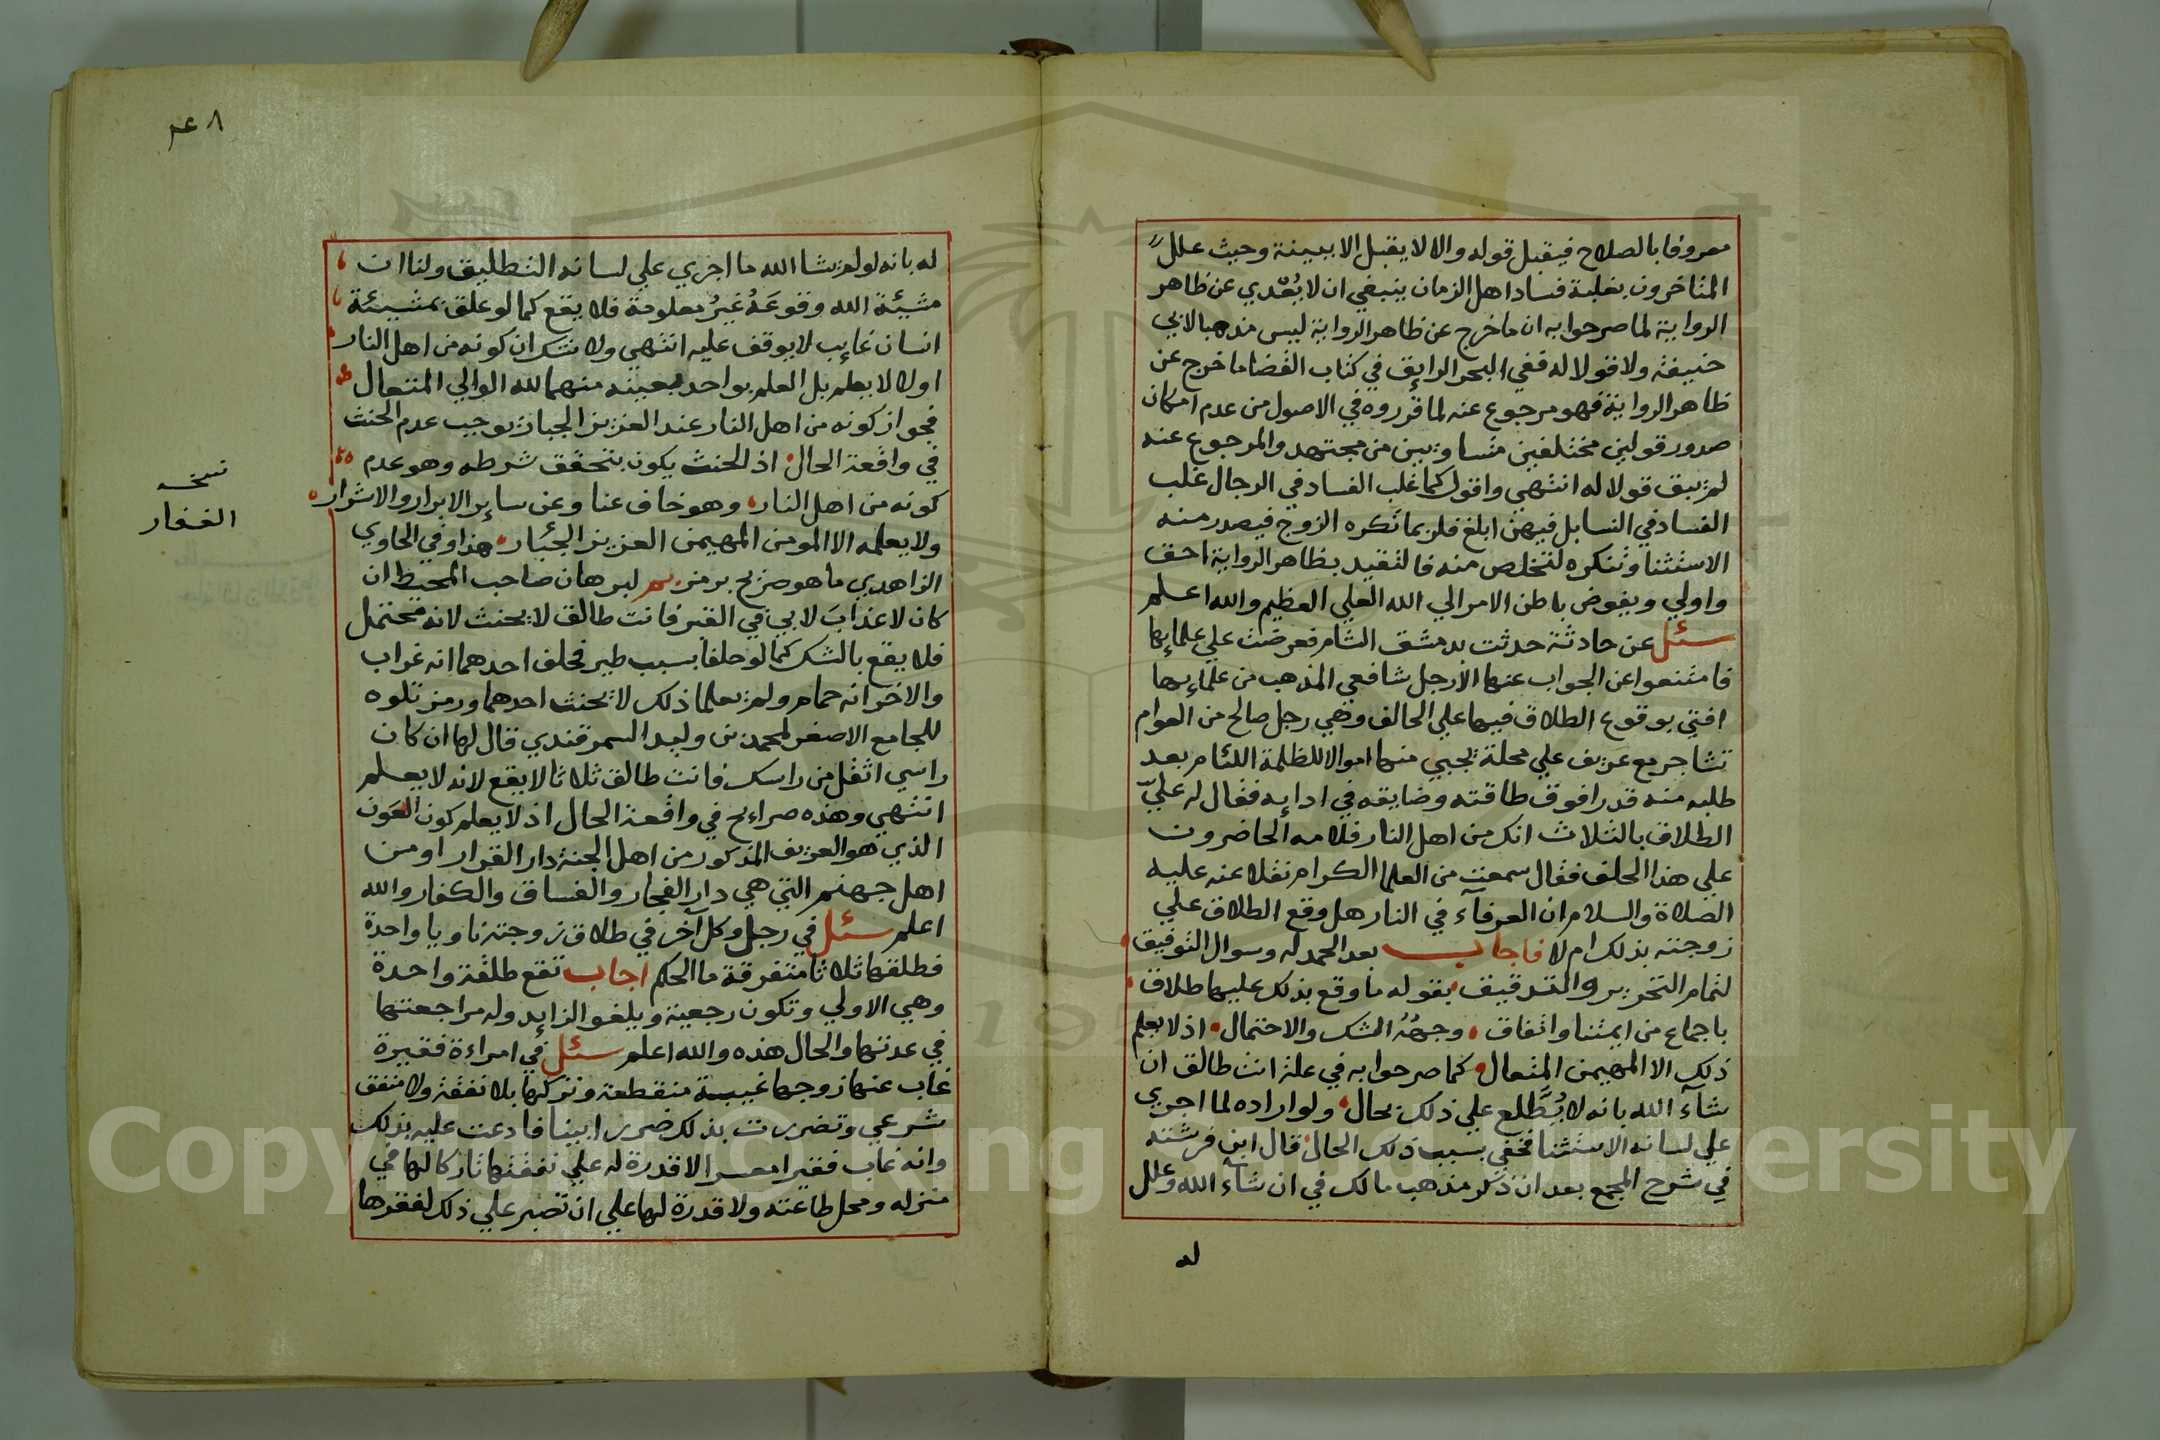 معروفا بالصلاح فيقبل قوله والا لا يقبل الا ببينة وحيث علل
المتاخرون بغلبة فساد اهل الزمان ينبغي ان لا يُعْدي عن ظاهر
الرواية لما صرحوا به ان ما خرج عن ظاهر الرواية ليس مذهبا لابي
حنيفة ولا قولا له ففي البحر الرايق في كتاب القضا ما خرج عن
ظاهر الرواية فهو مرجوع عنه لما قرروه في الاصول من عدم امكان
صدور قولين مختلفين متساويين من مجتهد والمرجوع عنه
لم يبق قولا له انتهي واقول كما غلب الفساد في الرجال غلب
الفساد في النسا بل فيهن ابلغ فلربما تكره الزوج فيصدر منه
الاستثنا وتنكره لتخلص منه فالتقيد بظاهر الرواية احق
واولي ويفوض باطن الامر الي الله العلي العظيم والله اعلم
سئل عن حادثة حدثت بدمشق الشام فعرضت علي علمايها
فامتنعوا عن الجواب عنها الا رجل شافعي المذهب من علمايها
افتي بوقوع الطلاق فيها علي الحالف وهي رجل صالح من العوام
تشاجر مع عريف علي محلة يجبي منها اموالا للظلمة اللئام بعد
طلبه منه قدرا فوق طاقته وضايقه في ادايه فقال له عليّ
الطلاق بالثلاث انك من اهل النار فلامه الحاضرون
علي هذا الحلف فقال سمعت من العلما الكرام نقلا عنه عليه
الصلاة والسلام ان العرفآء في النار هل وقع الطلاق علي
زوجته بذلك ام لا فاجاب بعد الحمد له وسوال التوفيق
لتمام التحرير والتدقيق بقوله ما وقع بذلك عليها طلاق
باجماع من ايمتنا واتفاق وجهُهُ الشك والاحتمال اذ لا يعلم
ذلك الا المهيمن المتعال كما صرحوا به في علة انت طالق ان
شآء الله بانه لا يُطَّلع علي ذلك بحال ولو اراده لما اجري
علي لسانه الاستثنا فخفي بسبب ذلك الحال قال ابن فرشته
في شرح المجمع بعد ان ذكر مذهب مالك في ان شآء الله وعلل
له
٢٤٨
له بانه لو لم يشا الله ما اجري علي لسانه التطليق ولنا ان
مشيئة الله وقوعَهُ غيرُ معلومة فلا يقع كما لو علق بمشيئة
انسان غايب لا يوقف عليه انتهي ولا شك ان كونه من اهل النار
اولا لا يعلم بل العلم بواحد بعينه منهما لله الوالي المتعال
فجواز كونه من اهل النار عند العزيز الجبار يوجب عدم الحنث
في واقعة الحال اذ الحنث يكون بتحقق شرطه وهو عدم
كونه من اهل النار وهو خاف عنا وعن ساير الابرار والاشرار
ولا يعلمه الا المومن المهيمن العزيز الجبار هذا وفي الحاوي
نسخه
الغفار
الزاهدي ما هو صريح برمز بم لبرهان صاحب المحيط ان
كان لا عذابَ لابي في القبر فانت طالق لا يحنث لانه محتمل
فلا يقع بالشك كما لو حلفا بسبب طير فحلف احدهما انه غراب
والاخر انه حمام ولم يعلما ذلك لا يحنث احدهما ورمز تلوه
للجامع الاصغر لمحمد بن وليد السمرقندي قال لها ان كان
راسي اثقل من راسك فانت طالق ثلاثا لا يقع لانه لا يعلم
انتهي وهذه صرايح في واقعة الحال اذ لا يعلم كون العَون
الذي هو العريف المذكور من اهل الجنة دار القرار او من
اهل جهنم التي هي دار الفجار والفساق والكفار والله
اعلم سئل في رجل وكل آخر في طلاق زوجته ناويا واحدة
فطلقها ثلاثا متفرقة ما الحكم اجاب تقع طلقة واحدة
وهي الاولي وتكون رجعية ويلغو الزايد وله مراجعتها
في عدتها والحال هذه والله اعلم سئل في امراءة فقيرة
غاب عنها زوجها غيبة منقطعة وتركها بلا نفقة ولا منفق
شرعي وتضررت بذلك ضررا بينا فادعت عليه بذلك
وانه غاب فقيرا معسرا لا قدرة له علي نفقتها تاركا لها في
منزله ومحل طاعته ولا قدرة لها علي ان تصبر علي ذلك لفقرها
Copyright © King Saud University